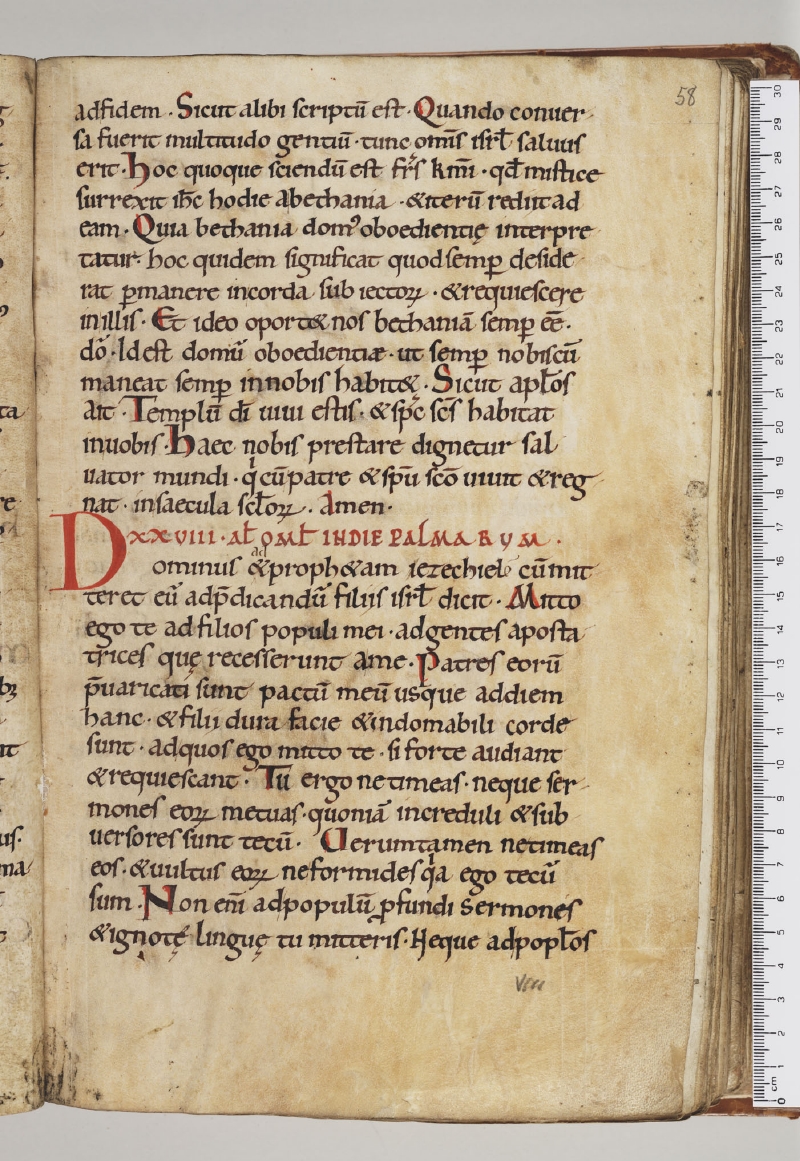 58
adfidem · Sicut alibi scriptū est · Quando conuer
sa fuerit multitudo gentiū · tunc omīs isrl̄ saluus
erit · hoc quoque sciendū est fr̄s km̄i · qd̄ mistice
surrexit ihc̄ hodie abethania · &iterū rediit ad
eam · Quia bethania domꝰ oboedientię interpre
tatur hoc quidem significat quod semꝑ deside
rat ꝑmanere incorda subiectoꝝ · &requiescere
inillis · Et ideo oport& nos bethaniā semꝑ eē ·
dō · Id est domū oboedientiæ · ut semꝑ nobiscū
maneat semꝑ innobis habit& · Sicut apl̄os
ait · Templū dī uiui estis · &sp̄c sc̄s habitat
inuobis · Haec nobis prestare dignetur sal
uator mundi · qi cū patre &sp̄u sc̄o uiuit &reg
nat · insaecula scl̄oꝝ · Amen ·
XXVIII · AL̄ OML̄ INDIE PALMARUM ·
ad
Dominus &proph&am iezechiel cū mit
teret eū adp̄dicandū filiis isrl̄ dicit · Mitto
ego te ad filios populi mei · adgentes aposta
trices quę recesserunt ame · Patres eorū
p̄uaricati sunt pactū meū usque addiem
hanc · &filii dura facie &indomabili corde
sunt · adquos ego mitto te · si forte audiant
&requiescant · Tū ergo netimeas · neque ser
mones eoꝝ metuas · quoniā increduli &sub
uersores sunt tecū · Uerumtamen netimeas
eos · &uultus eoꝝ neformides qa ego tecū
sum · Non enī adpopulū ꝓfundi sermones
&ignotę linguę tu mitteris · Neque adpopl̄os
VIII